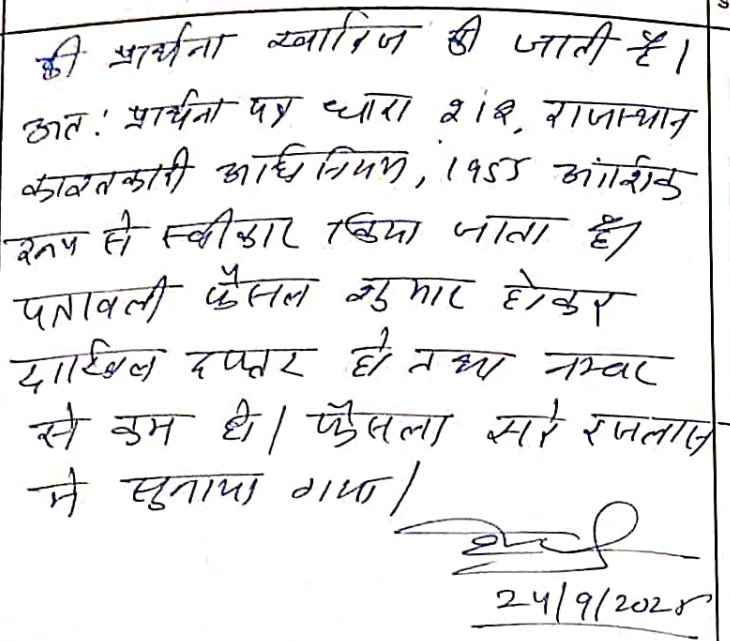 की प्रार्थना खारिज की जाती है।
अत: प्रार्थना पत्र धारा 212, राजस्थान
काश्तकारी अधिनियम, 1955 आंशिक
रूप से स्वीकार किया जाता है।
पत्रावली फैसल शुमार होकर
दाखिल दफ्तर हो तथा नम्बर
से कम हो। फैसला सरे इजलास
मे सुनाया गया।
24/9/2025